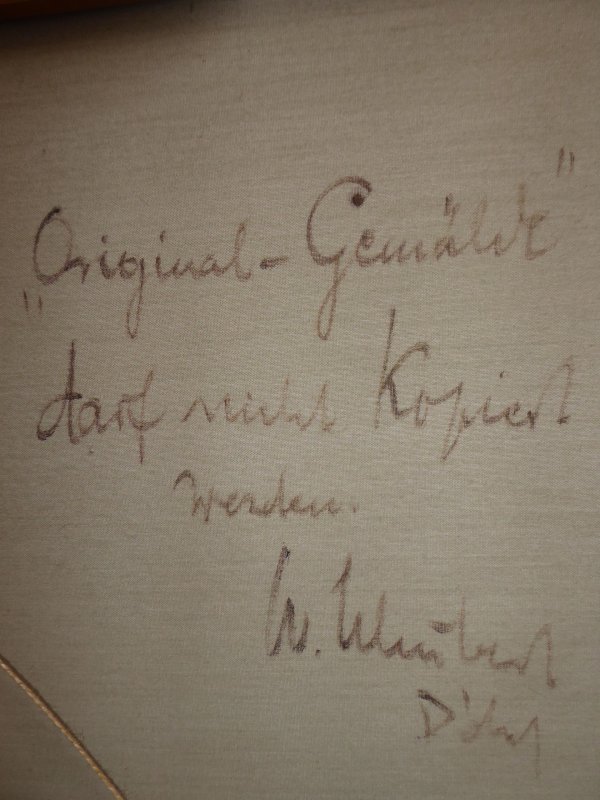 „Original-Gemälde"
darf nicht Kopiert
werden.
W.
D'dorf